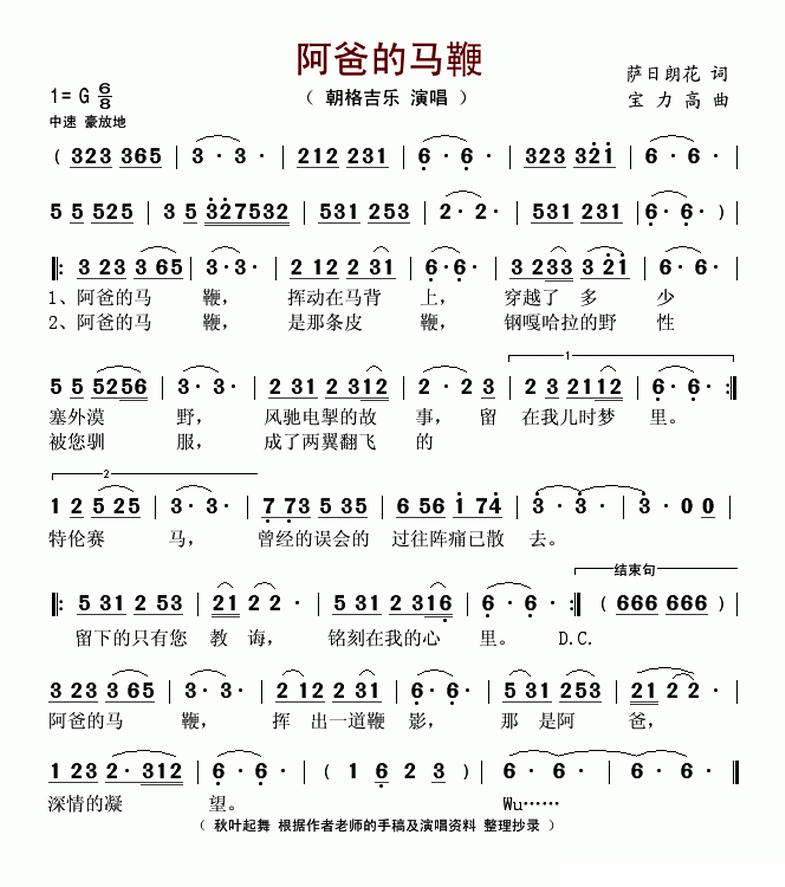 阿爸的马鞭
（ 朝格吉乐 演唱 ）
萨日朗花 词
宝 力 高 曲
1= G 6/8
中速 豪放地
（ 323 365 | 3· 3· | 212 231 | 6· 6· | 323 321 | 6· 6· |
5 5 525 | 3 5 327532 | 531 253 | 2· 2· | 531 231 | 6· 6· ）|
‖: 3 23 3 65 | 3· 3· | 2 12 2 31 | 6· 6· | 3 233 3 21 | 6· 6· |
1、阿爸的马 鞭， 挥动在马背 上， 穿越了 多 少
2、阿爸的马 鞭， 是那条皮 鞭， 钢嘎哈拉的野 性
1
5 5 5256 | 3· 3· | 2 31 2 312 | 2· 2 3 | 2 3 2112 | 6· 6· :‖
塞外漠 野， 风驰电掣的故 事， 留 在我儿时梦 里。
被您驯 服， 成了两翼翻飞 的
2
1 2 5 25 | 3· 3· | 7 73 5 35 | 6 56 1 74 | 3· 3· | 3· 0 0 |
特伦赛 马， 曾经的误会的 过往阵痛已散 去。
结束句
‖: 5 31 2 53 | 21 2 2· | 5 31 2 316 | 6· 6· :‖ （ 666 666 ）|
留下的只有您 教 诲， 铭刻在我的心 里。 D.C.
3 23 3 65 | 3· 3· | 2 12 2 31 | 6· 6· | 5 31 253 | 21 2 2· |
阿爸的马 鞭， 挥 出一道鞭 影， 那 是阿 爸，
1 23 2· 312 | 6· 6· | （ 1 6 2 3 ）| 6· 6· | 6· 6· ‖
深情的凝 望。 Wu……
（ 秋叶起舞 根据作者老师的手稿及演唱资料 整理抄录 ）